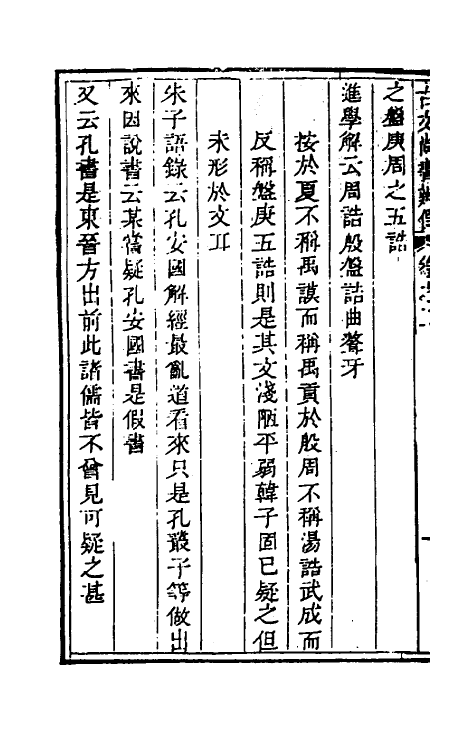 之盤庚周之五誥
進學解云周誥殷盤詰曲聱牙
按於夏不稱禹謨而稱禹貢於殷周不稱湯誥武成而
反稱盤庚五誥則是其文淺陋平弱韓子固已疑之但
未形於文耳
朱子語錄云孔安國解經最亂道看來只是孔叢子等做出
來因說書云某嘗疑孔安國書是假書
又云孔書是東晉方出前此諸儒皆不曾見可疑之甚